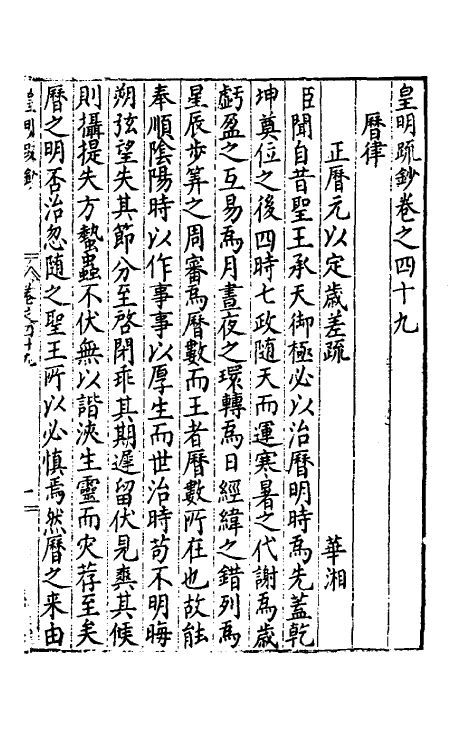 皇明疏鈔卷之四十九
曆律
正曆元以定歲差疏 華湘
臣聞自昔聖王承天御極必以治曆明時爲先蓋乾
坤奠位之後四時七政隨天而運寒暑之代謝爲歲
虧盈之互易爲月晝夜之環轉爲日經緯之錯列爲
星辰步筭之周審爲曆數而王者曆數所在也故能
奉順陰陽時以作事事以厚生而世治時苟不明晦
朔弦望失其節分至啓閉乖其期遲留伏見爽其候
則攝提失方蟄蟲不伏無以諧浹生靈而灾荐至矣
曆之明否治忽隨之聖王所以必慎焉然曆之来由
皇明疏鈔 卷之四十九 一